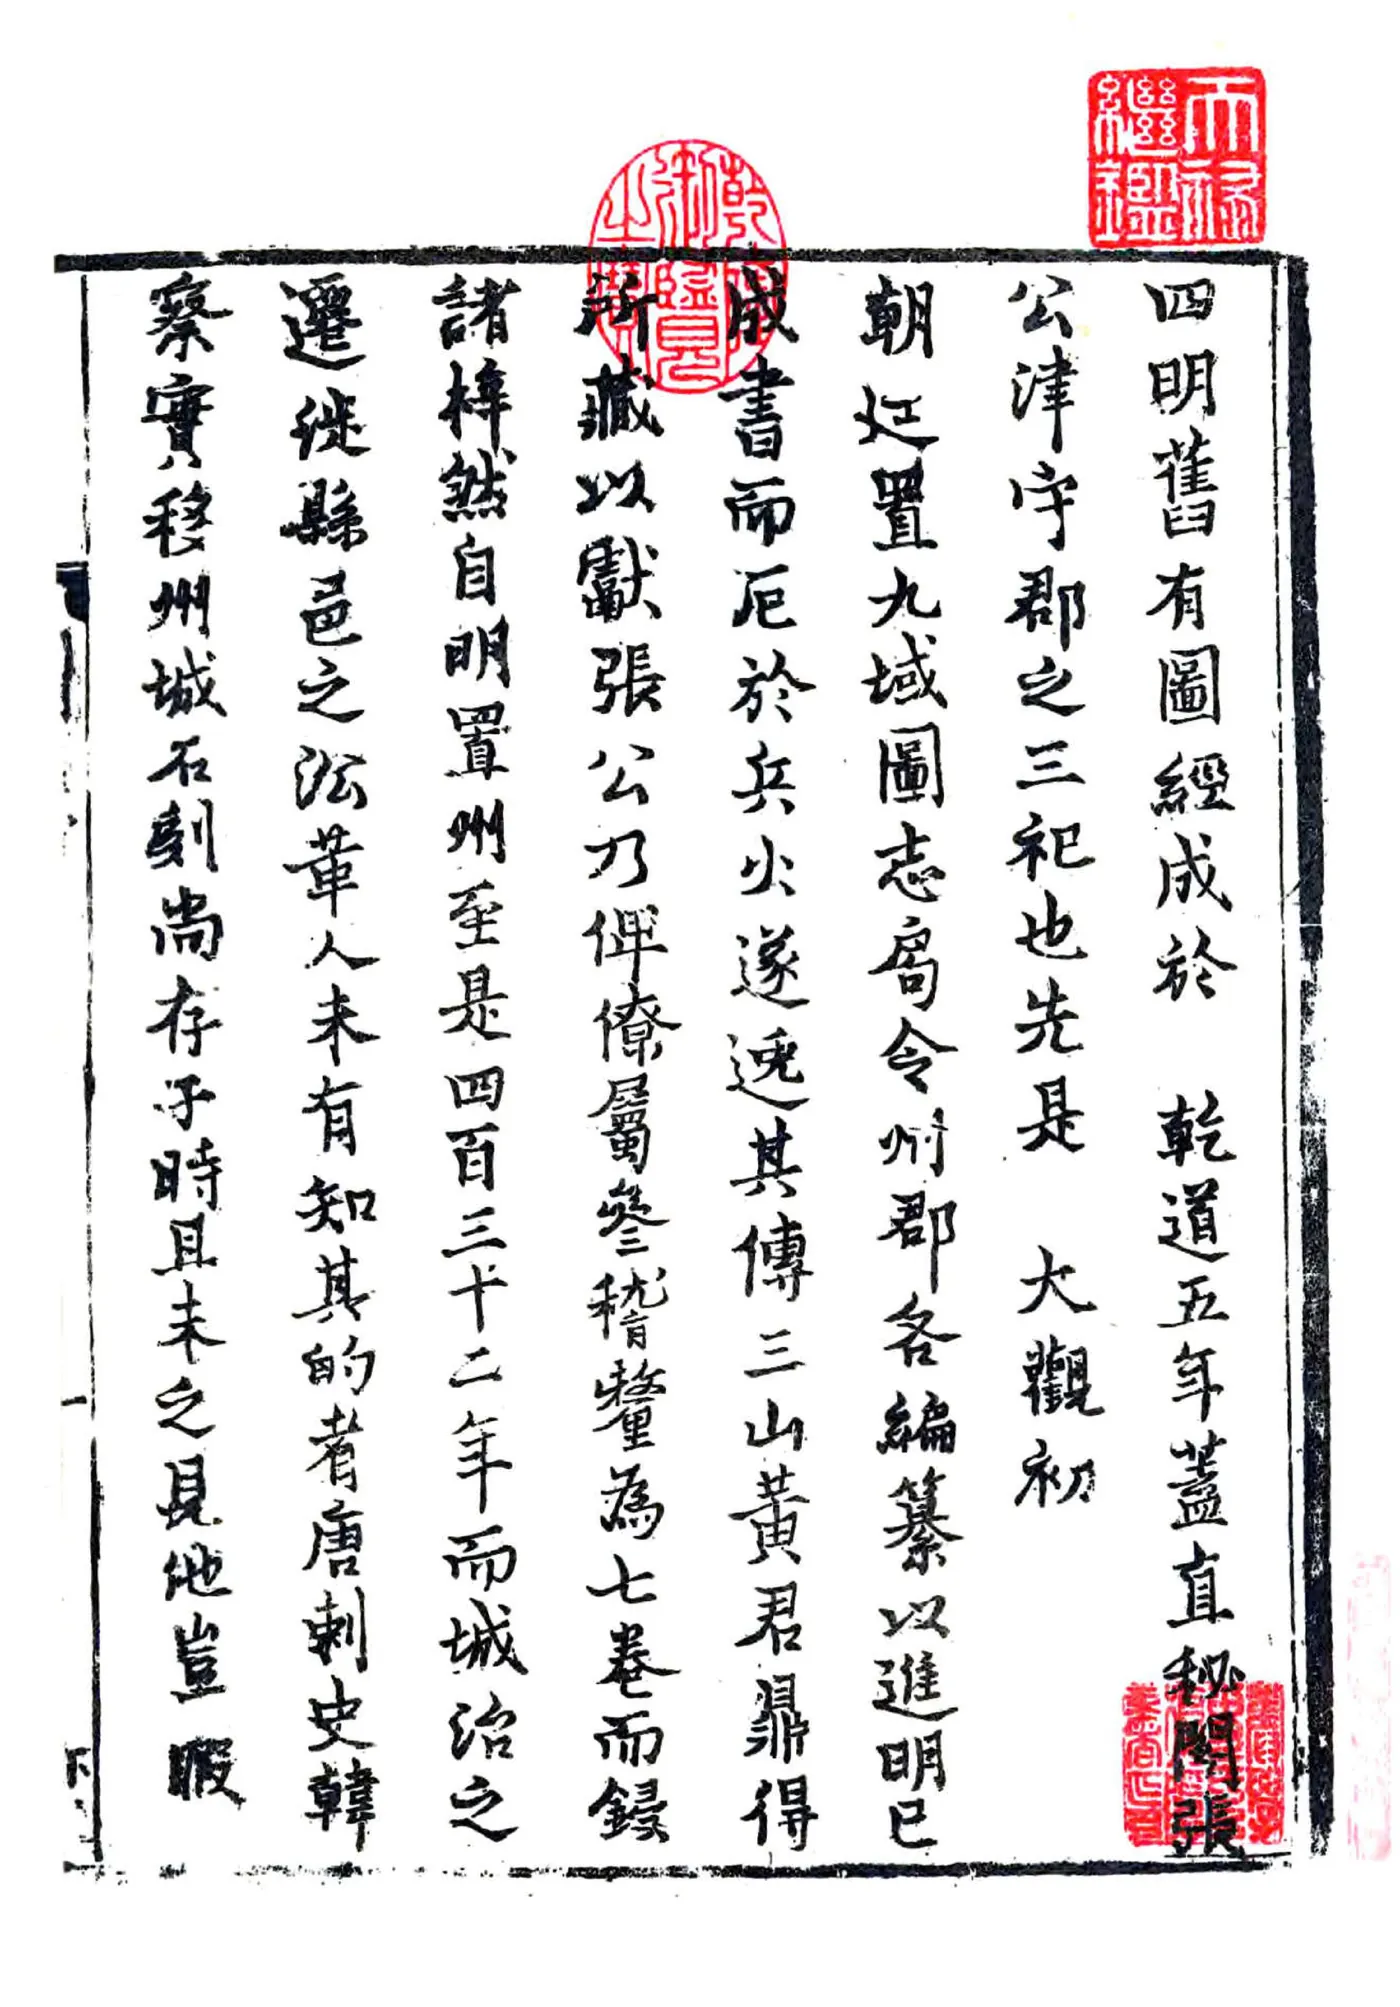 四明舊有圖經成於　乾道五年蓋直秘閣張
公津守郡之三祀也先是　大觀初
朝廷置九域圖志局令州郡各編纂以進明已
成書而厄於兵火遂逸其傳三山黃君鼎得
所藏以獻張公乃俾僚屬參稽釐為七卷而鋟
諸梓然自明置州至是四百三十二年而城治之
遷徙縣邑之沿革人未有知其的者唐刺史韓
察實移州城石刻尚存于時且未之見他豈暇
天祿繼鑑
乾隆御覽之寶